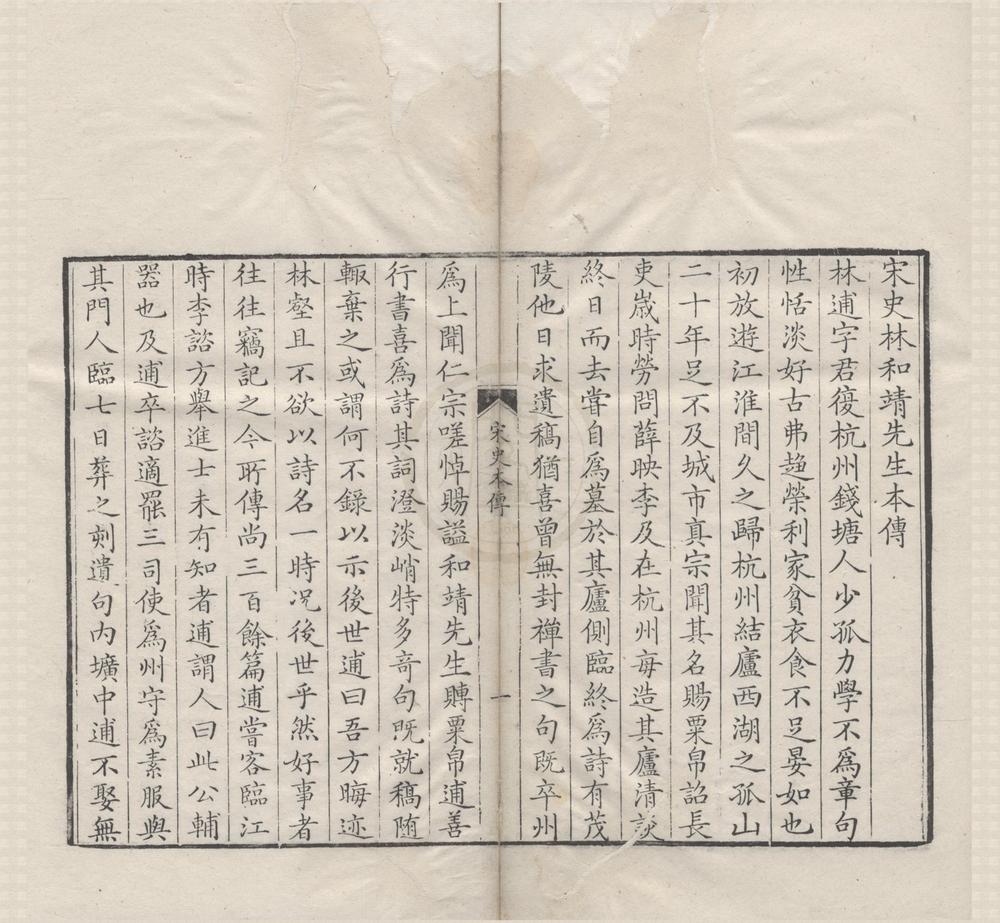 宋史林和靖先生本傳
林逋字君復杭州錢塘人少孤力學不爲章句
性恬淡好古弗趨榮利家貧衣食不足晏如也
初放遊江淮間久之歸杭州結廬西湖之孤山
二十年足不及城市真宗聞其名賜粟帛詔長
吏歲時勞問薛映李及在杭州每造其廬清談
終日而去嘗自爲墓於其廬側臨終爲詩有茂
陵他日求遺稿猶喜曾無封禪書之句既卒州
宋史本傳
一
爲上聞仁宗嗟悼賜謚和靖先生賻粟帛逋善
行書喜爲詩其詞澄淡峭特多奇句既就稿隨
輙棄之或謂何不錄以示後世逋曰吾方晦迹
林壑且不欲以詩名一時况後世乎然好事者
往往竊記之今所傳尚三百餘篇逋嘗客臨江
時李諮方舉進士未有知者逋謂人曰此公輔
器也及逋卒諮適罷三司使爲州守爲素服與
其門人臨七日葬之刻遺句内壙中逋不娶無